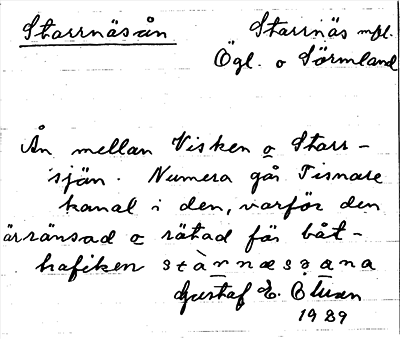 Starrnäsån
Starrnäs mfl.
Ögl. o Sörmland
Ån mellan Visken o Starr-
sjön. Numera går Tisnare
kanal i den, varför den
är ränsad o rätad för båt-
trafiken
Gustaf E.
1989